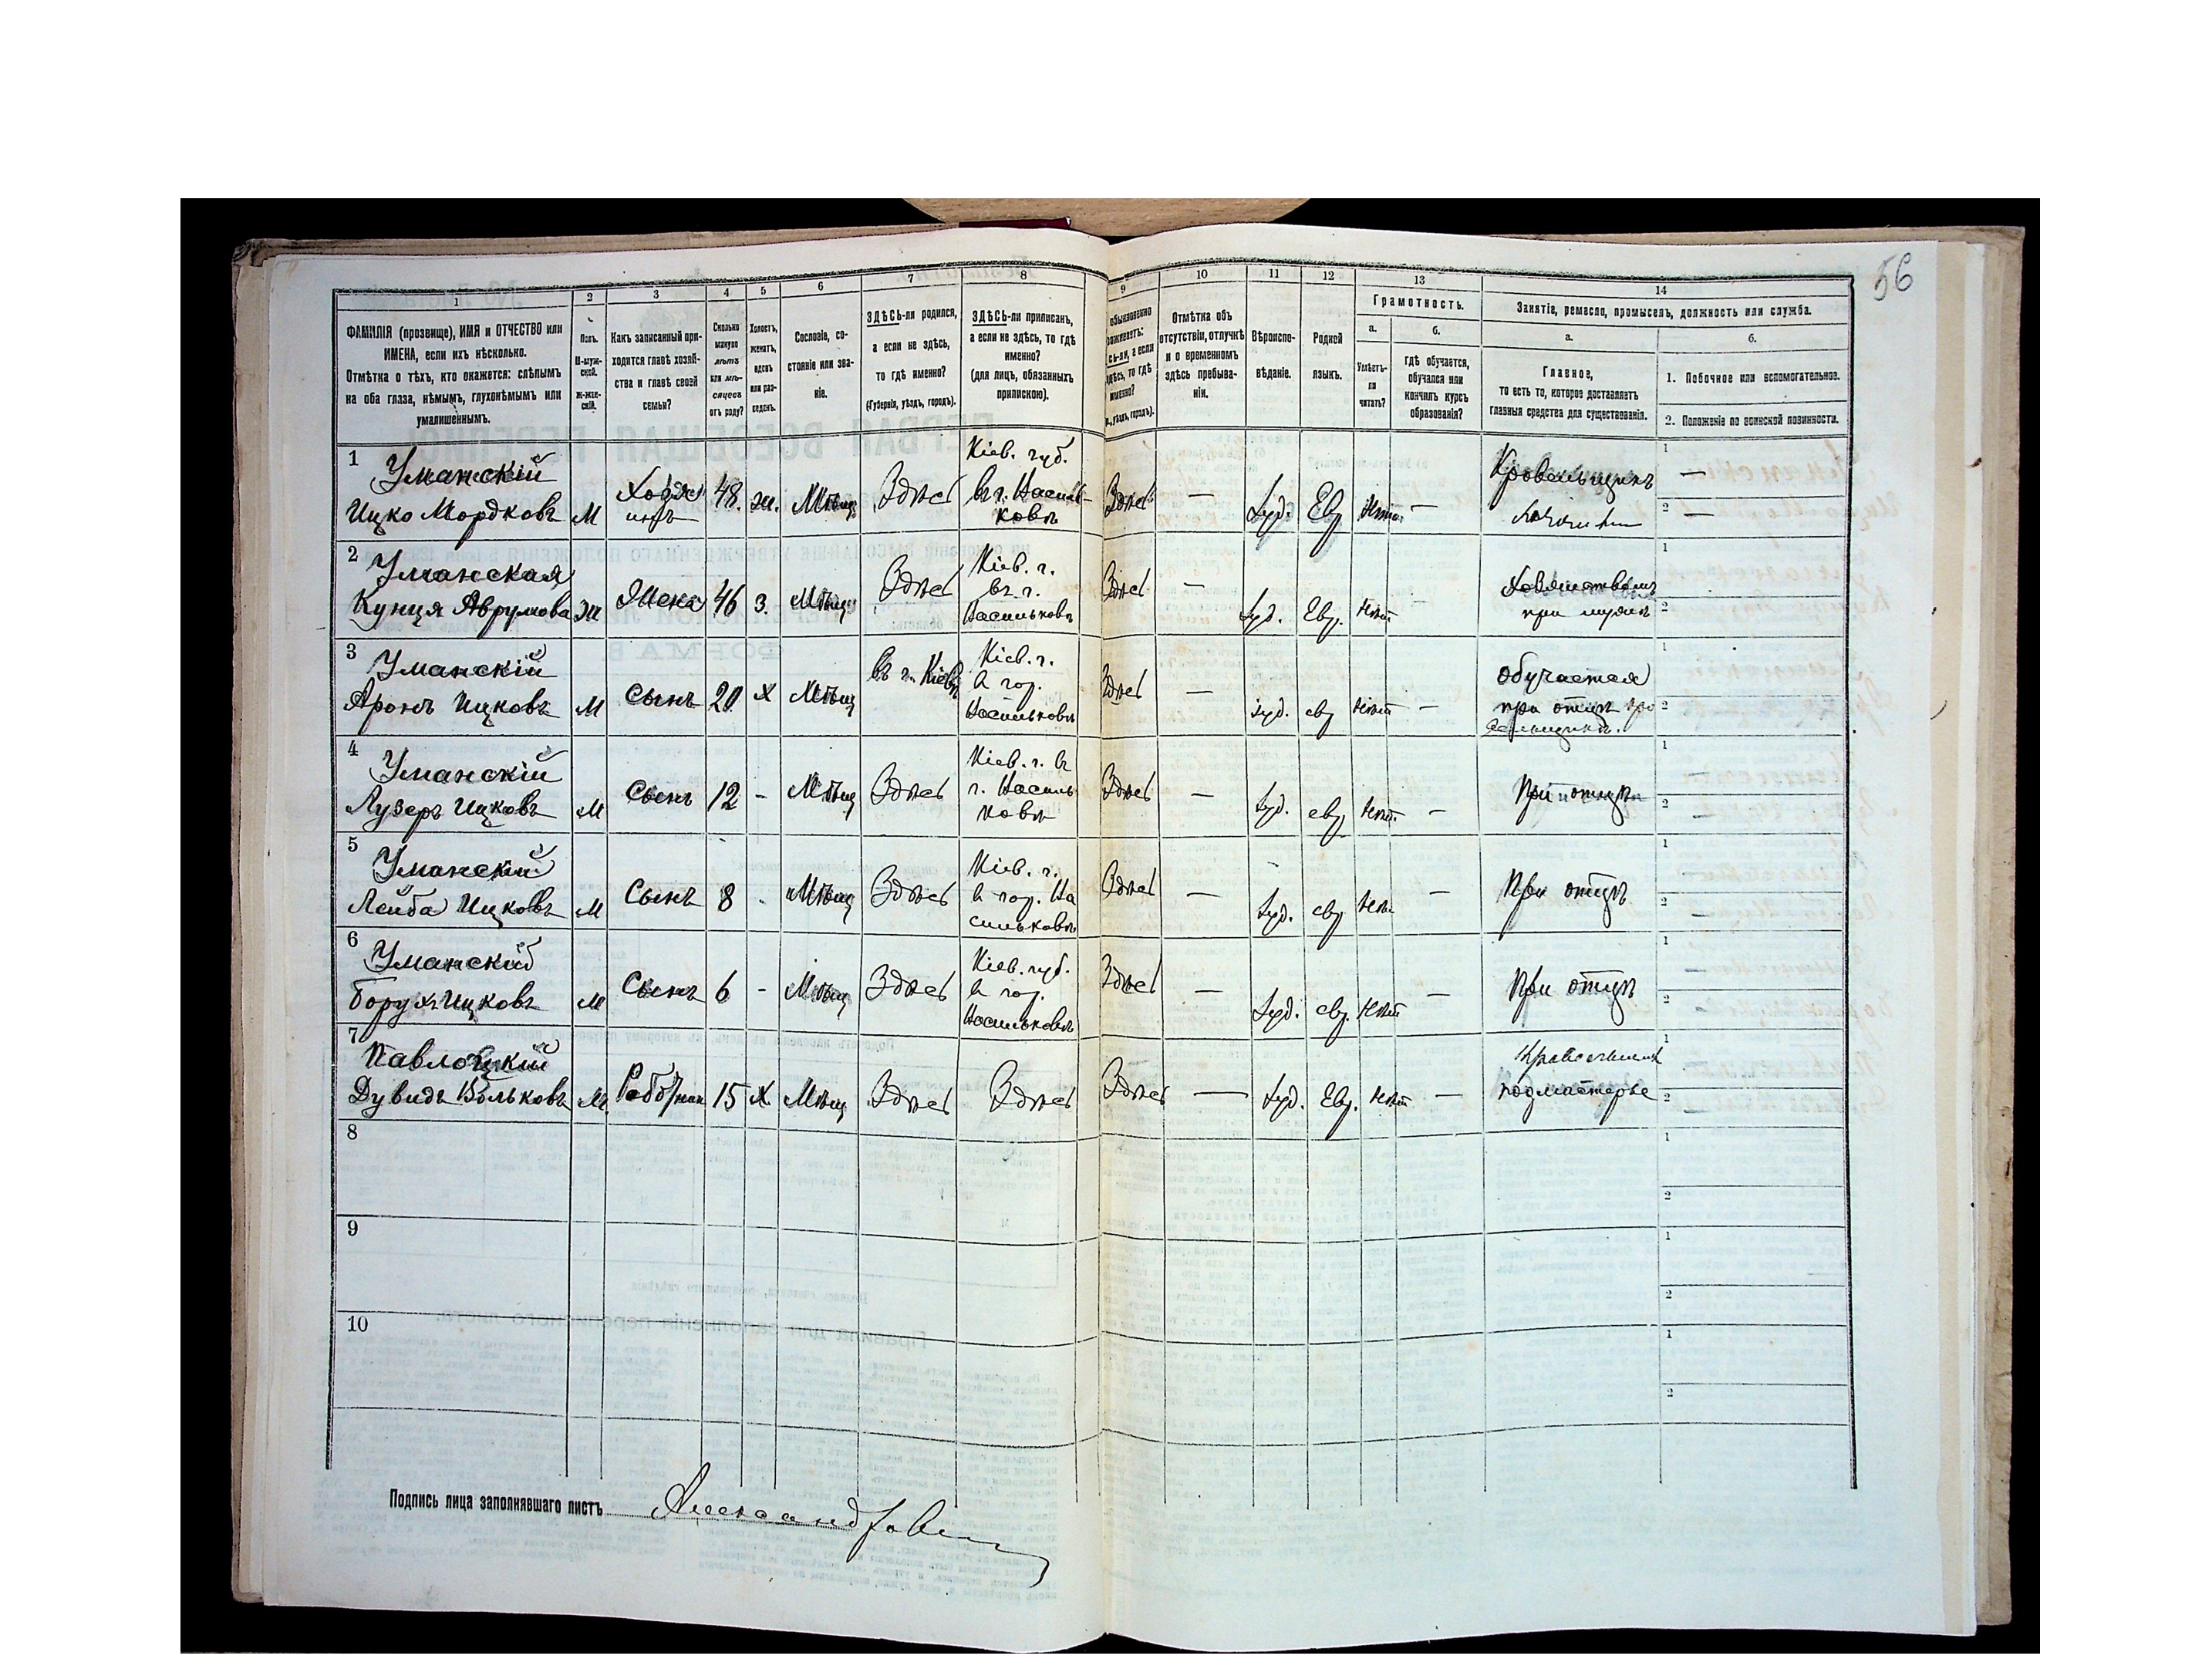 56
1 2 3 4 5 6 7 8 9 10 11 12 13 14
ФАМИЛІЯ (прозвище), ИМЯ и ОТЧЕСТВО или
ИМЕНА, если ихъ нѣсколько.
Отмѣтка о тѣхъ, кто окажется: слѣпымъ
на оба глаза, нѣмымъ, глухонѣмымъ или
умалишённымъ.
Полъ.
М-муж-
ской.
Ж-жен-
скій.
Какъ записанный при-
ходится главѣ хозяй-
ства и главѣ своей
семьи?
Сколько
минуло
лѣтъ
или мѣ-
сяцевъ
отъ роду?
Холостъ,
женатъ,
вдовъ
или раз-
веденъ.
Сословіе, со-
стояніе или зва-
ніе.
ЗДѢСЬ-ли родился,
а если не здѣсь,
то гдѣ именно?
(Губернія, уѣздъ, городъ).
ЗДѢСЬ-ли приписанъ,
а если не здѣсь, то гдѣ
именно?
(для лицъ, обязанныхъ
припискою).
обыкновенно
проживаетъ:
сь-ли, а если
здѣсь, то гдѣ
именно?
уѣздъ, городъ).
Отмѣтка объ
отсутствіи, отлучкѣ
и о временномъ
здѣсь пребыва-
ніи.
Вѣроиспо-
вѣданіе.
Родной
языкъ.
Грамотность.
а. б.
Умѣетъ-
ли
читать?
гдѣ обучается,
обучался или
кончилъ курсъ
образованія?
Занятіе, ремесло, промыселъ, должность или служба.
а. б.
Главное,
то есть то, которое доставляетъ
главныя средства для существованія.
1. Побочное или вспомогательное.
2. Положеніе по воинской повинности.
1 Уманскій
Ицко Мордковъ М Хозя
инъ 48. ж. Мѣщ Здѣсь Кіев. губ.
въ г. Василь-
ковѣ Здѣсь — Іуд. Евр Нѣтъ — Кровельщикъ
1 —
2 —
2 Уманская
Куння Аврумова Ж Жена 46 З. Мѣщ Здѣсь Кіев. г.
въ г.
Васильковѣ Здѣсь — Іуд. Евр. Нѣтъ — Хозяйствомъ
при мужѣ
1
2
3 Уманскій
Аронъ Ицковъ М Сынъ 20 Х Мѣщ въ г. Кіевѣ Кіев. г.
в гор.
Васильковѣ Здѣсь — Іуд. евр Нѣтъ — Обучается
при отцѣ кро
вельщикъ.
1
2
4 Уманскій
Лузеръ Ицковъ М Сынъ 12 - Мѣщ Здѣсь Кіев. г. въ
г. Василь
ковѣ Здѣсь — Іуд. евр Нѣт. — При отцѣ
1
2
5 Уманскій
Лейба Ицковъ М Сынъ 8 - Мѣщ Здѣсь Кіев. г.
в гор. Ва
сильковѣ Здѣсь — Іуд. евр Нѣт — При отцѣ
1
2
6 Уманскій
Борухъ Ицковъ М Сынъ 6 - Мѣщ Здѣсь Кіев. губ.
в гор.
Васильковѣ Здѣсь — Іуд. евр. Нѣтъ — При отцѣ
1
2
7 Павлоцкій
Дувидъ Вольковъ М. 15 Х Мѣщ Здѣсь Здѣсь Здѣсь — Іуд. Евр. Нѣтъ —
подмастерье
1
2
8
1
2
9
1
2
10
1
2
Подпись лица заполнявшаго листъ